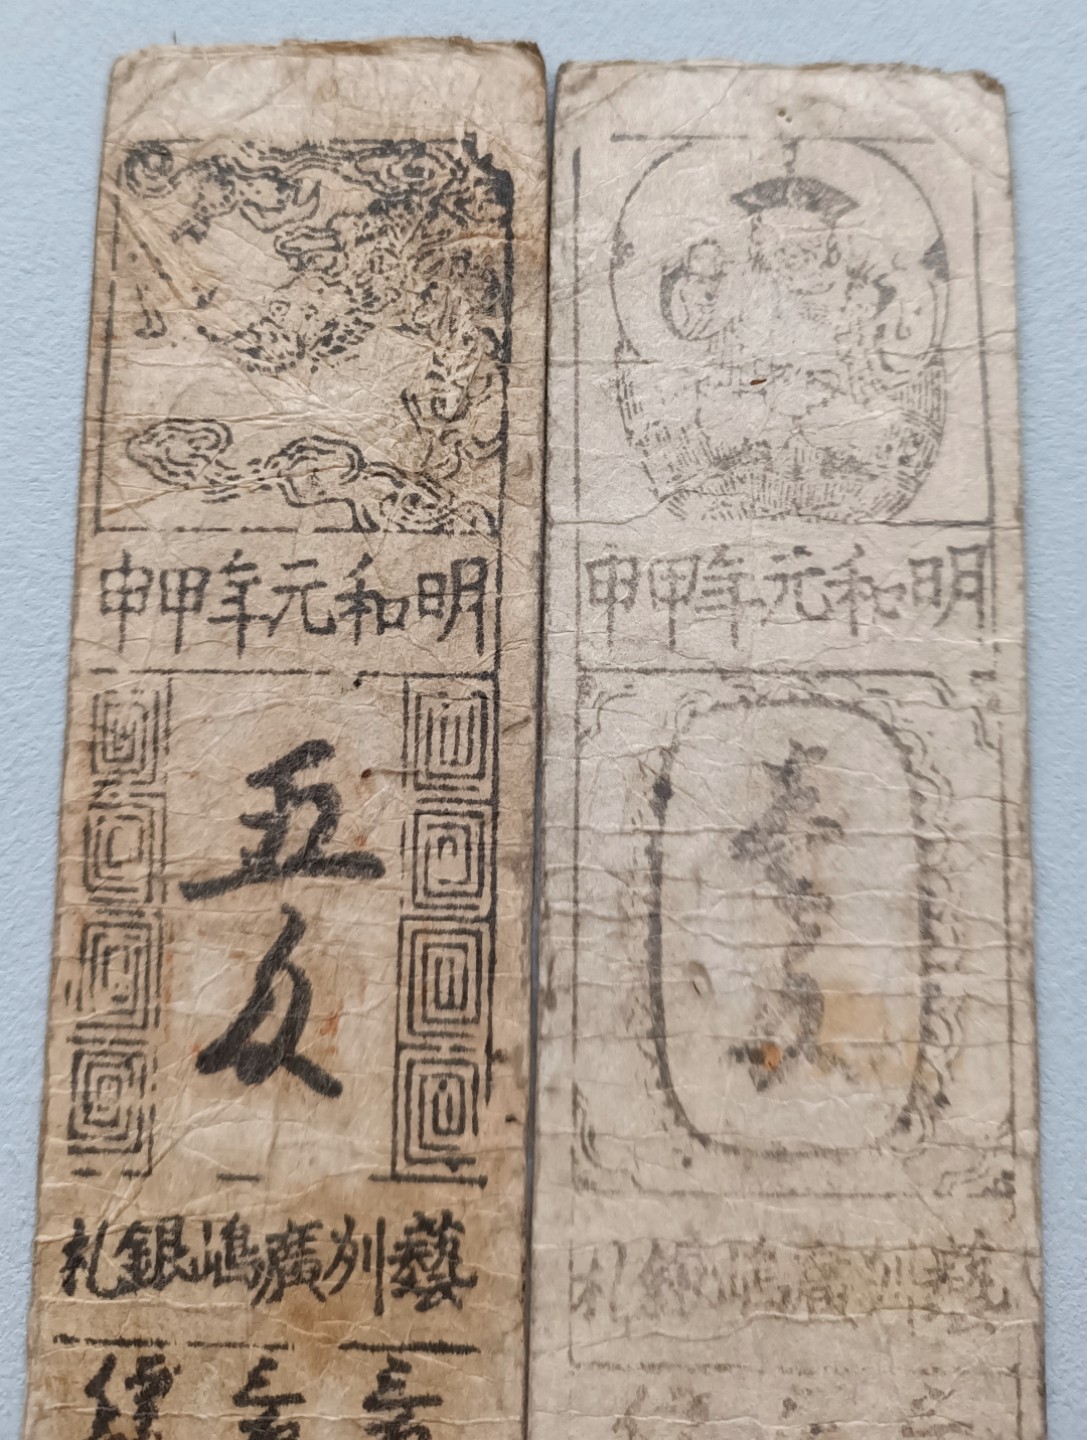 明和元年甲申
五匁
藝州廣嶋銀札
明和元年甲申
壹匁
藝州廣嶋銀札